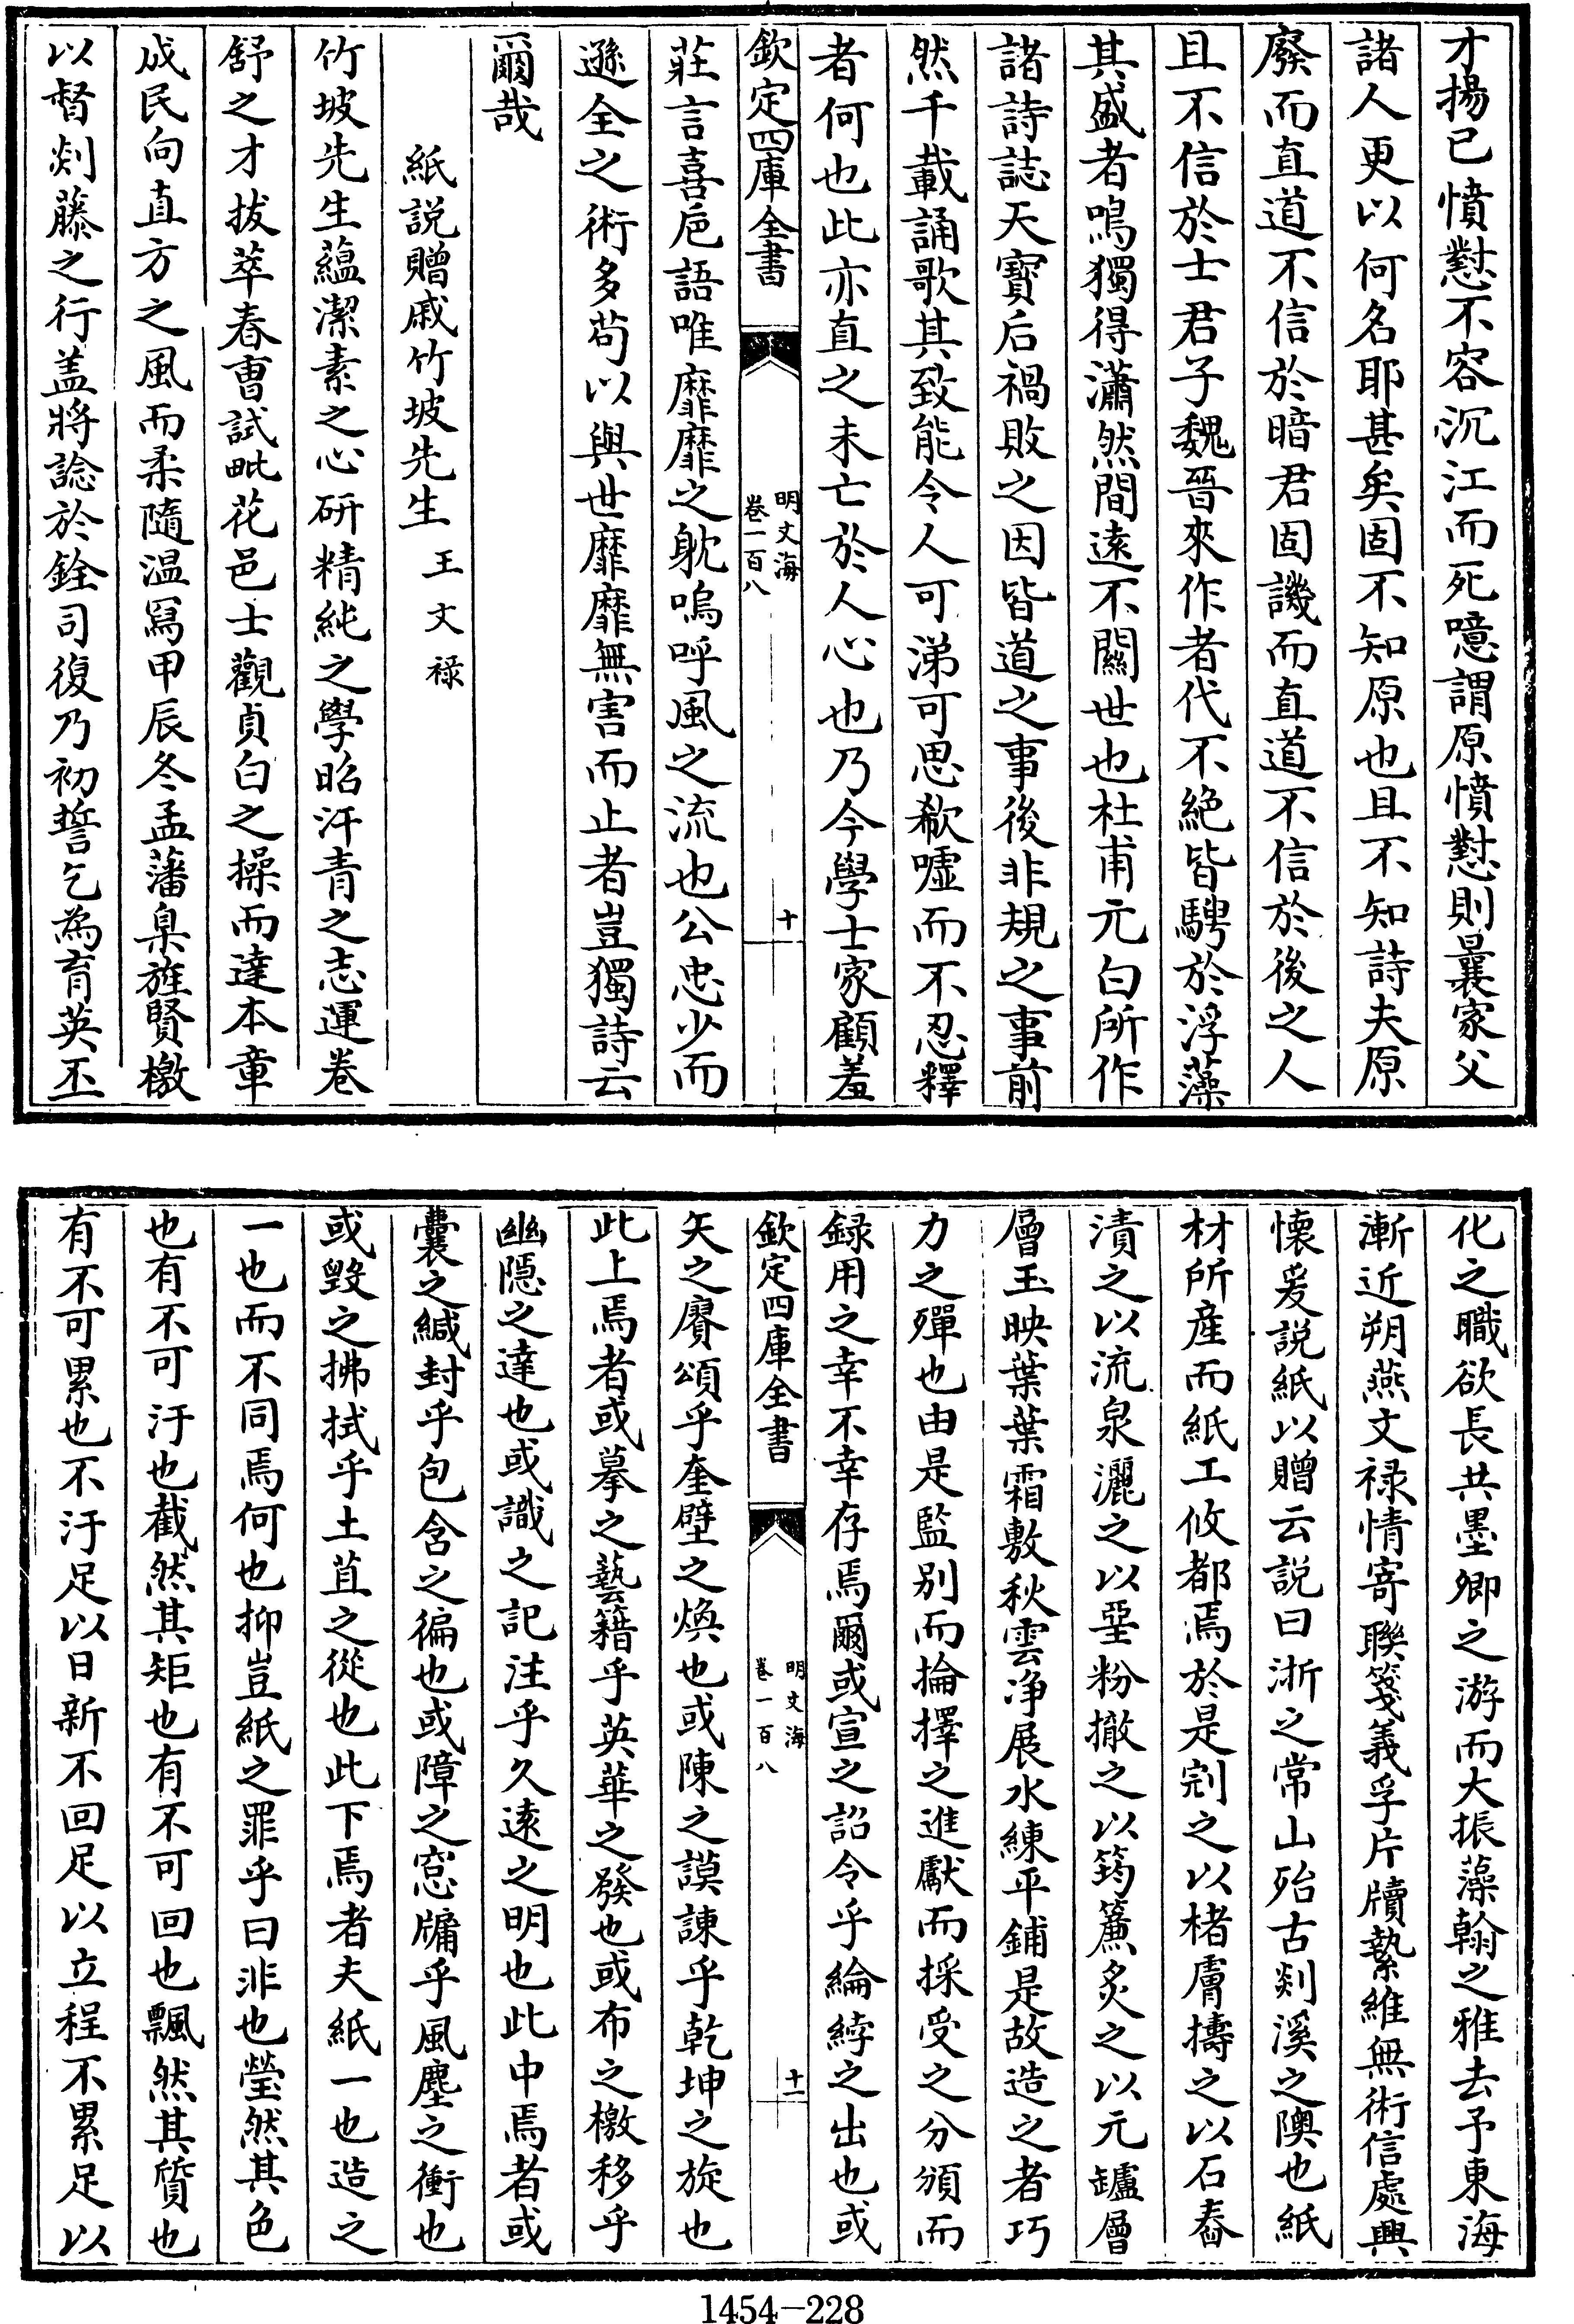 才揚已憤懟不容沉江而死噫謂原憤懟則曩家父
諸人更以何名耶甚矣固不知原也且不知詩夫原
廢而直道不信於暗君固譏而直道不信於後之人
且不信於士君子魏晉來作者代不絶皆騁於浮藻
其盛者鳴獨得瀟然閒遠不關世也杜甫元白所作
諸詩誌天寳后禍敗之因皆道之事後非規之事前
然千載誦歌其致能令人可涕可思欷嘘而不忍釋
者何也此亦直之未亡於人心也乃今學士家顧羞
欽定四庫全書
明文海
卷一百八
十
莊言喜巵語唯靡靡之躭嗚呼風之流也公忠少而
遜全之術多苟以與世靡靡無害而止者豈獨詩云
爾哉
紙說贈戚竹坡先生 王文祿
竹坡先生藴潔素之心研精純之學昭汗青之志運卷
舒之才拔萃春曹試毗花邑士觀貞白之操而達本章
成民向直方之風而柔隨温冩甲辰冬孟藩臬旌賢檄
以督剡藤之行盖將諗於銓司復乃初誓乞為育英丕
化之職欲長共墨卿之游而大振藻翰之雅去予東海
漸近朔燕文禄情寄聯箋義孚片牘縶維無術信處興
懷爰說紙以贈云說曰浙之常山殆古剡溪之隩也紙
材所産而紙工攸都焉於是剜之以楮膚擣之以石舂
漬之以流泉灑之以堊粉撤之以筠簾炙之以元罏層
層玉映葉葉霜敷秋雲净展水練平鋪是故造之者巧
力之殫也由是監别而掄擇之進獻而採受之分頒而
録用之幸不幸存焉爾或宣之詔令乎綸綍之出也或
欽定四庫全書
明文海
卷一百八
十一
矢之賡頌乎奎壁之煥也或陳之謨諫乎乾坤之旋也
此上焉者或摹之藝籍乎英華之發也或布之檄移乎
幽隠之達也或識之記注乎久逺之明也此中焉者或
囊之緘封乎包含之徧也或障之窓牖乎風塵之衝也
或毁之拂拭乎土苴之從也此下焉者夫紙一也造之
一也而不同焉何也抑豈紙之罪乎曰非也瑩然其色
也有不可汙也截然其矩也有不可回也飄然其質也
有不可累也不汙足以日新不回足以立程不累足以
1454—228